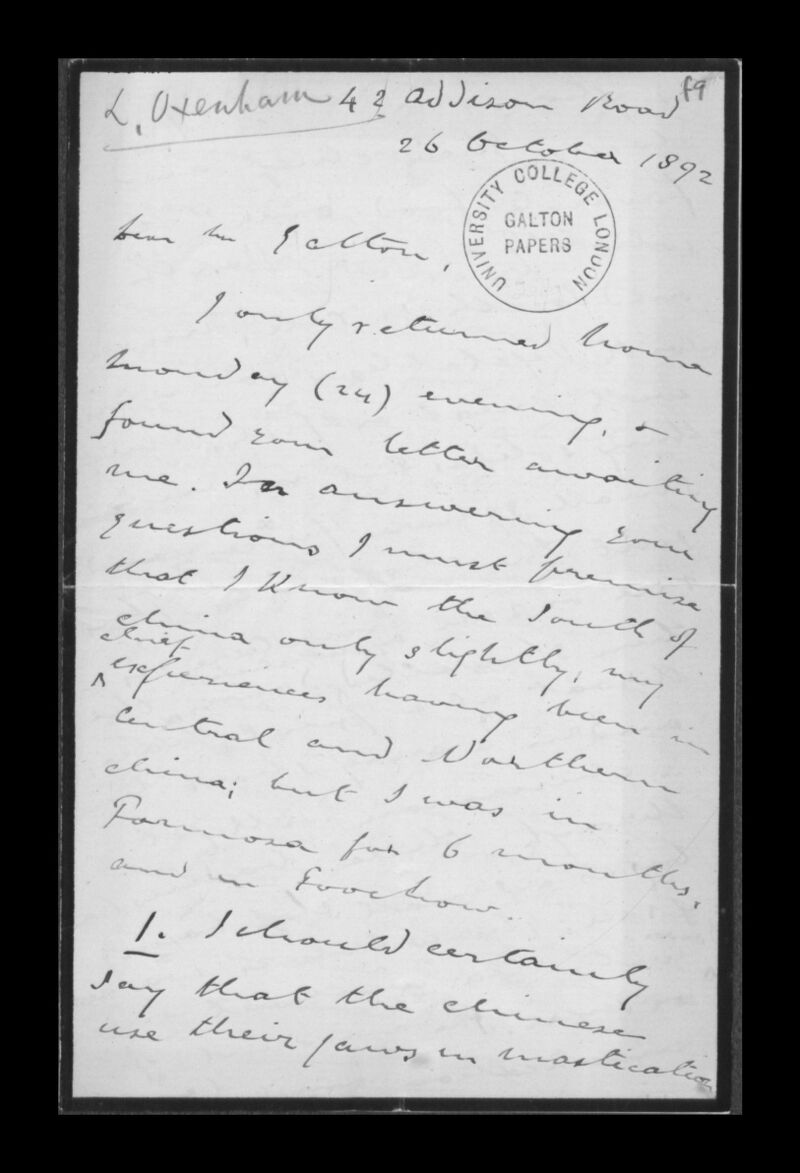 L. Oxenham 42 Addison Road f9
26 October 1892
UNIVERSITY COLLEGE LONDON
GALTON
PAPERS
Dear Mr Galton,
I only returned home
Monday (24) evening, &
found your letter awaiting
me. In answering your
questions I must premise
that I know the South of
China only slightly, my
chief
experiences having been in
Central and Northern
China; but I was in
Formosa for 6 months,
and in Foochow.
1. I should certainly
say that the Chinese
use their jaws in mastication